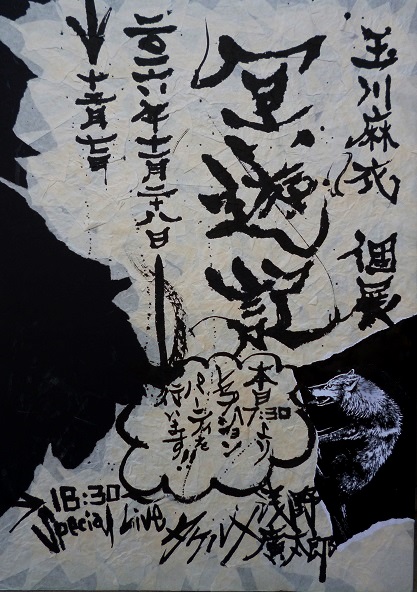 玉川麻衣 個展
冥遊記
二〇一六年十一月二十八日
↓
十二月七日
本日
17:30より
レセプション
パーティを
行います!!
18:30
Special Live
浅野廣太郎
タケルメ